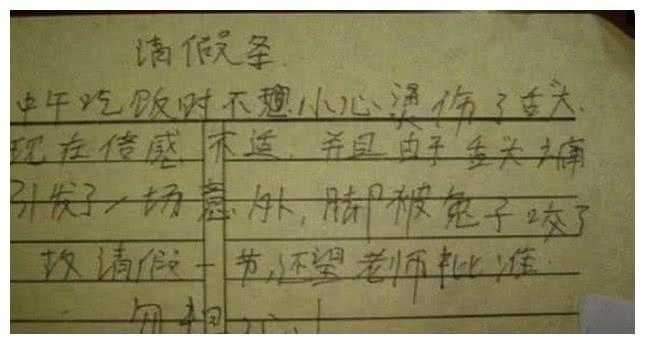 请假条
中午吃饭时不想小心烫伤了舌头.
现在倍感不适.并且由于舌头之痛
引发了一场意外,脚被兔子咬了
故请假一节,还望老师批准.